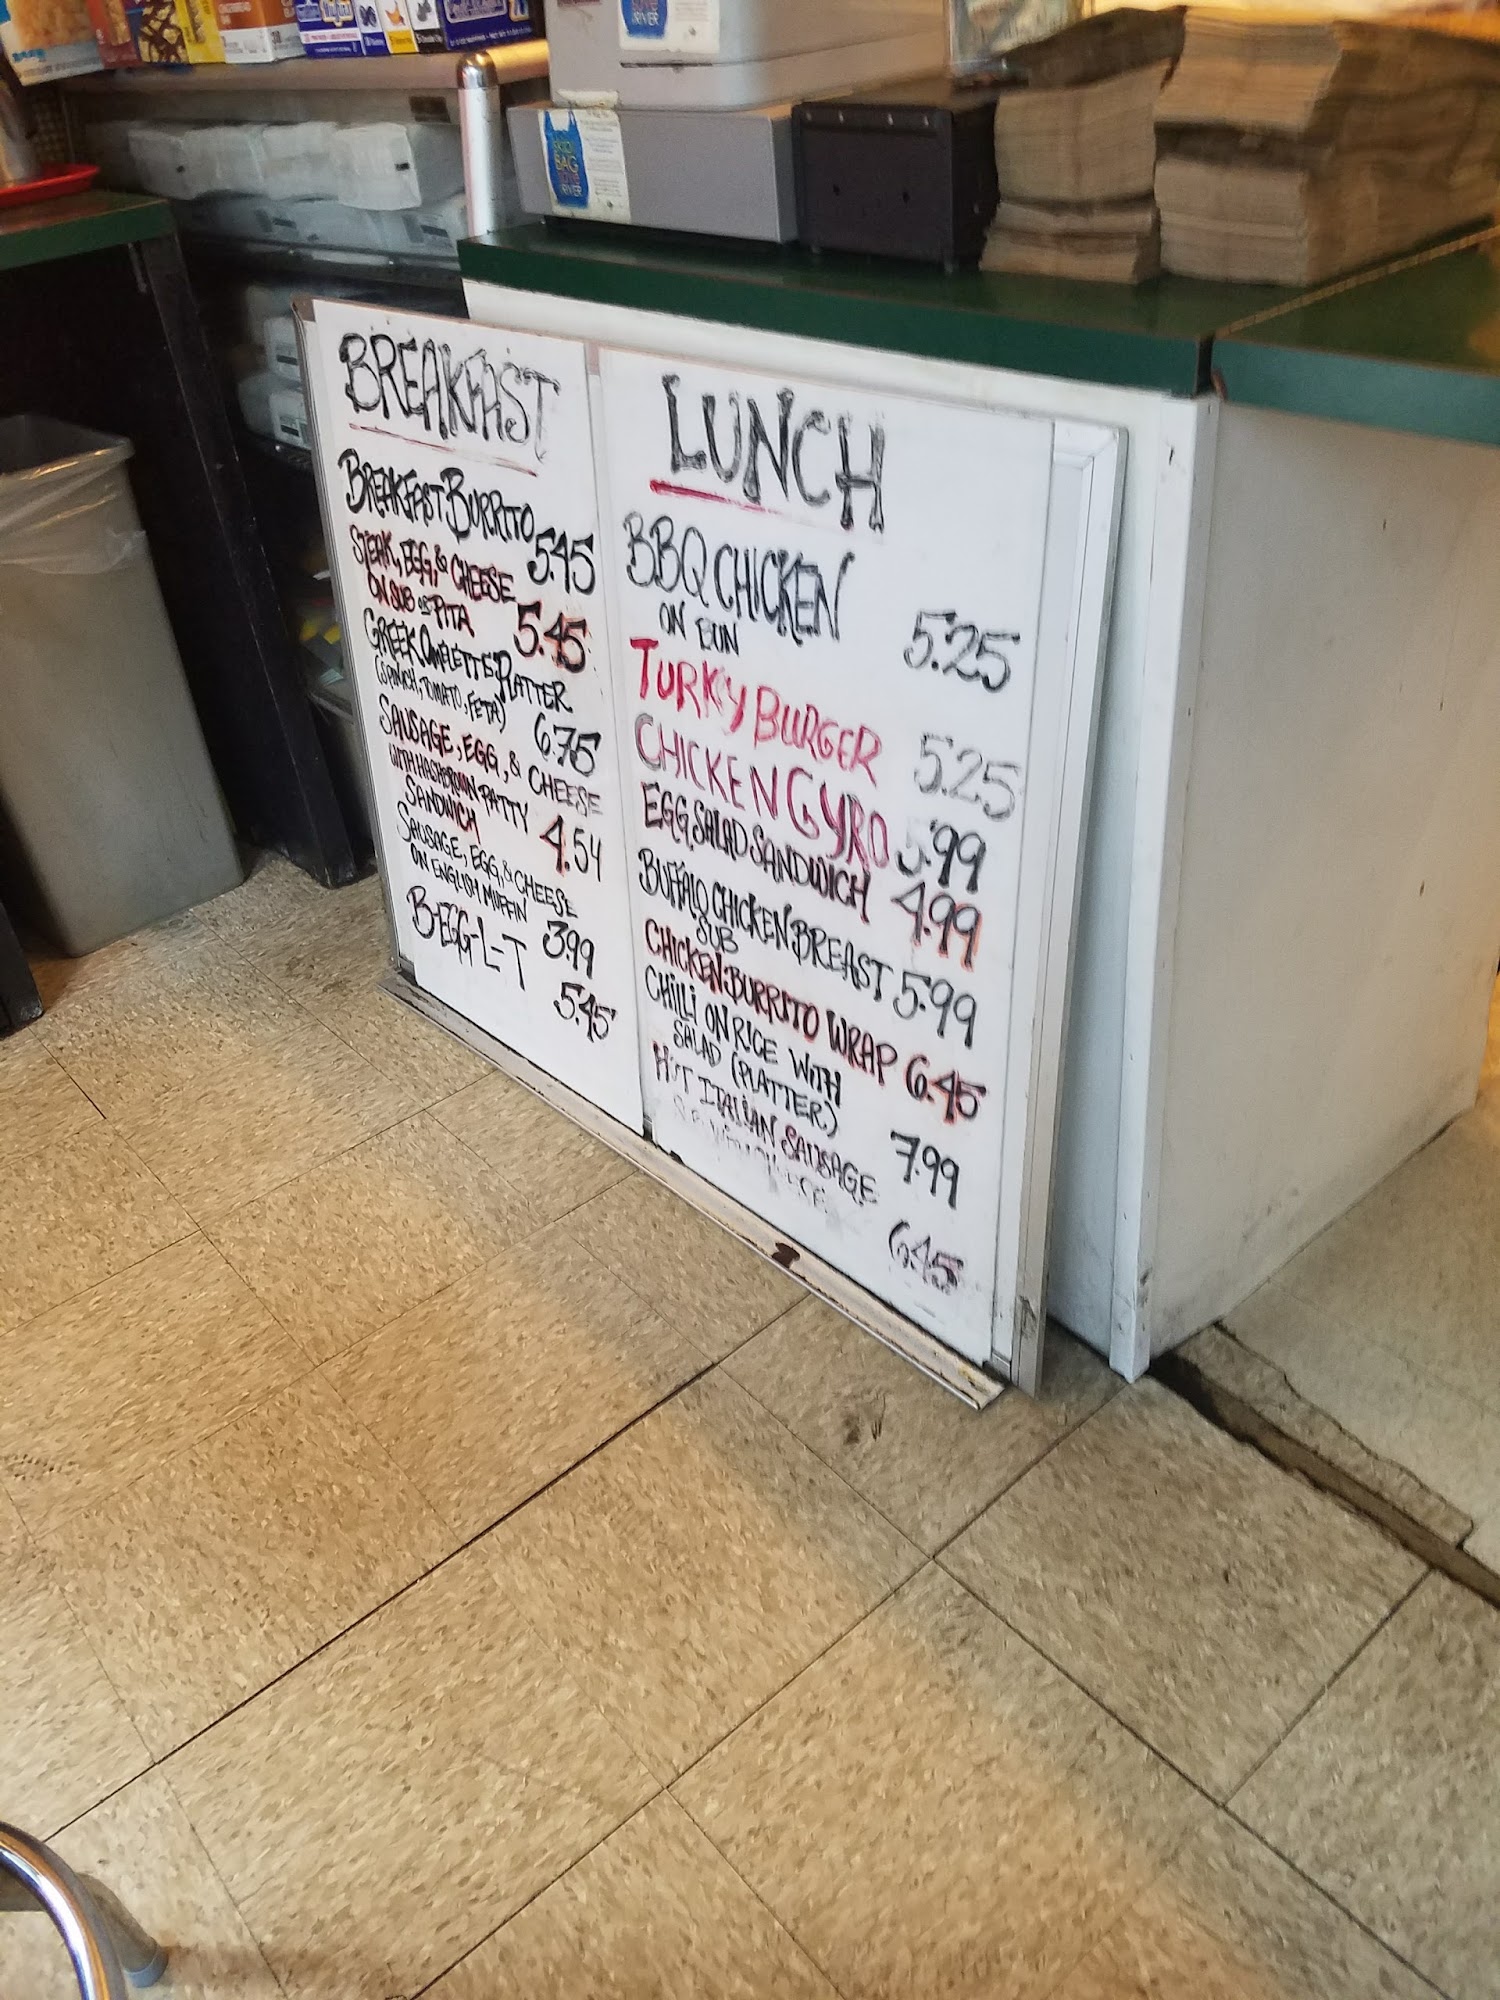 SKIP
BAG
RIVER
BREAKFAST
BREAKFAST BURRITO 5.45
STEAK, EGG, & CHEESE
ON SUB OR PITA 5.45
GREEK OMELETTE PLATTER
(SPINICH, TOMATO, FETA) 6.75
SAUSAGE, EGG, & CHEESE
WITH HASHBROWN PATTY
SANDWICH 4.54
SAUSAGE, EGG, & CHEESE
ON ENGLISH MUFFIN 3.99
B-EGG-L-T
5.45
LUNCH
BBQ CHICKEN
ON BUN 5.25
TURKEY BURGER 5.25
CHICKEN GYRO 5.99
EGG SALAD SANDWICH 4.99
BUFFALO CHICKEN BREAST 5.99
SUB
CHICKEN BURRITO WRAP 6.45
CHILLI ON RICE WITH
SALAD (PLATTER) 7.99
HOT ITALIAN SAUSAGE
6.45